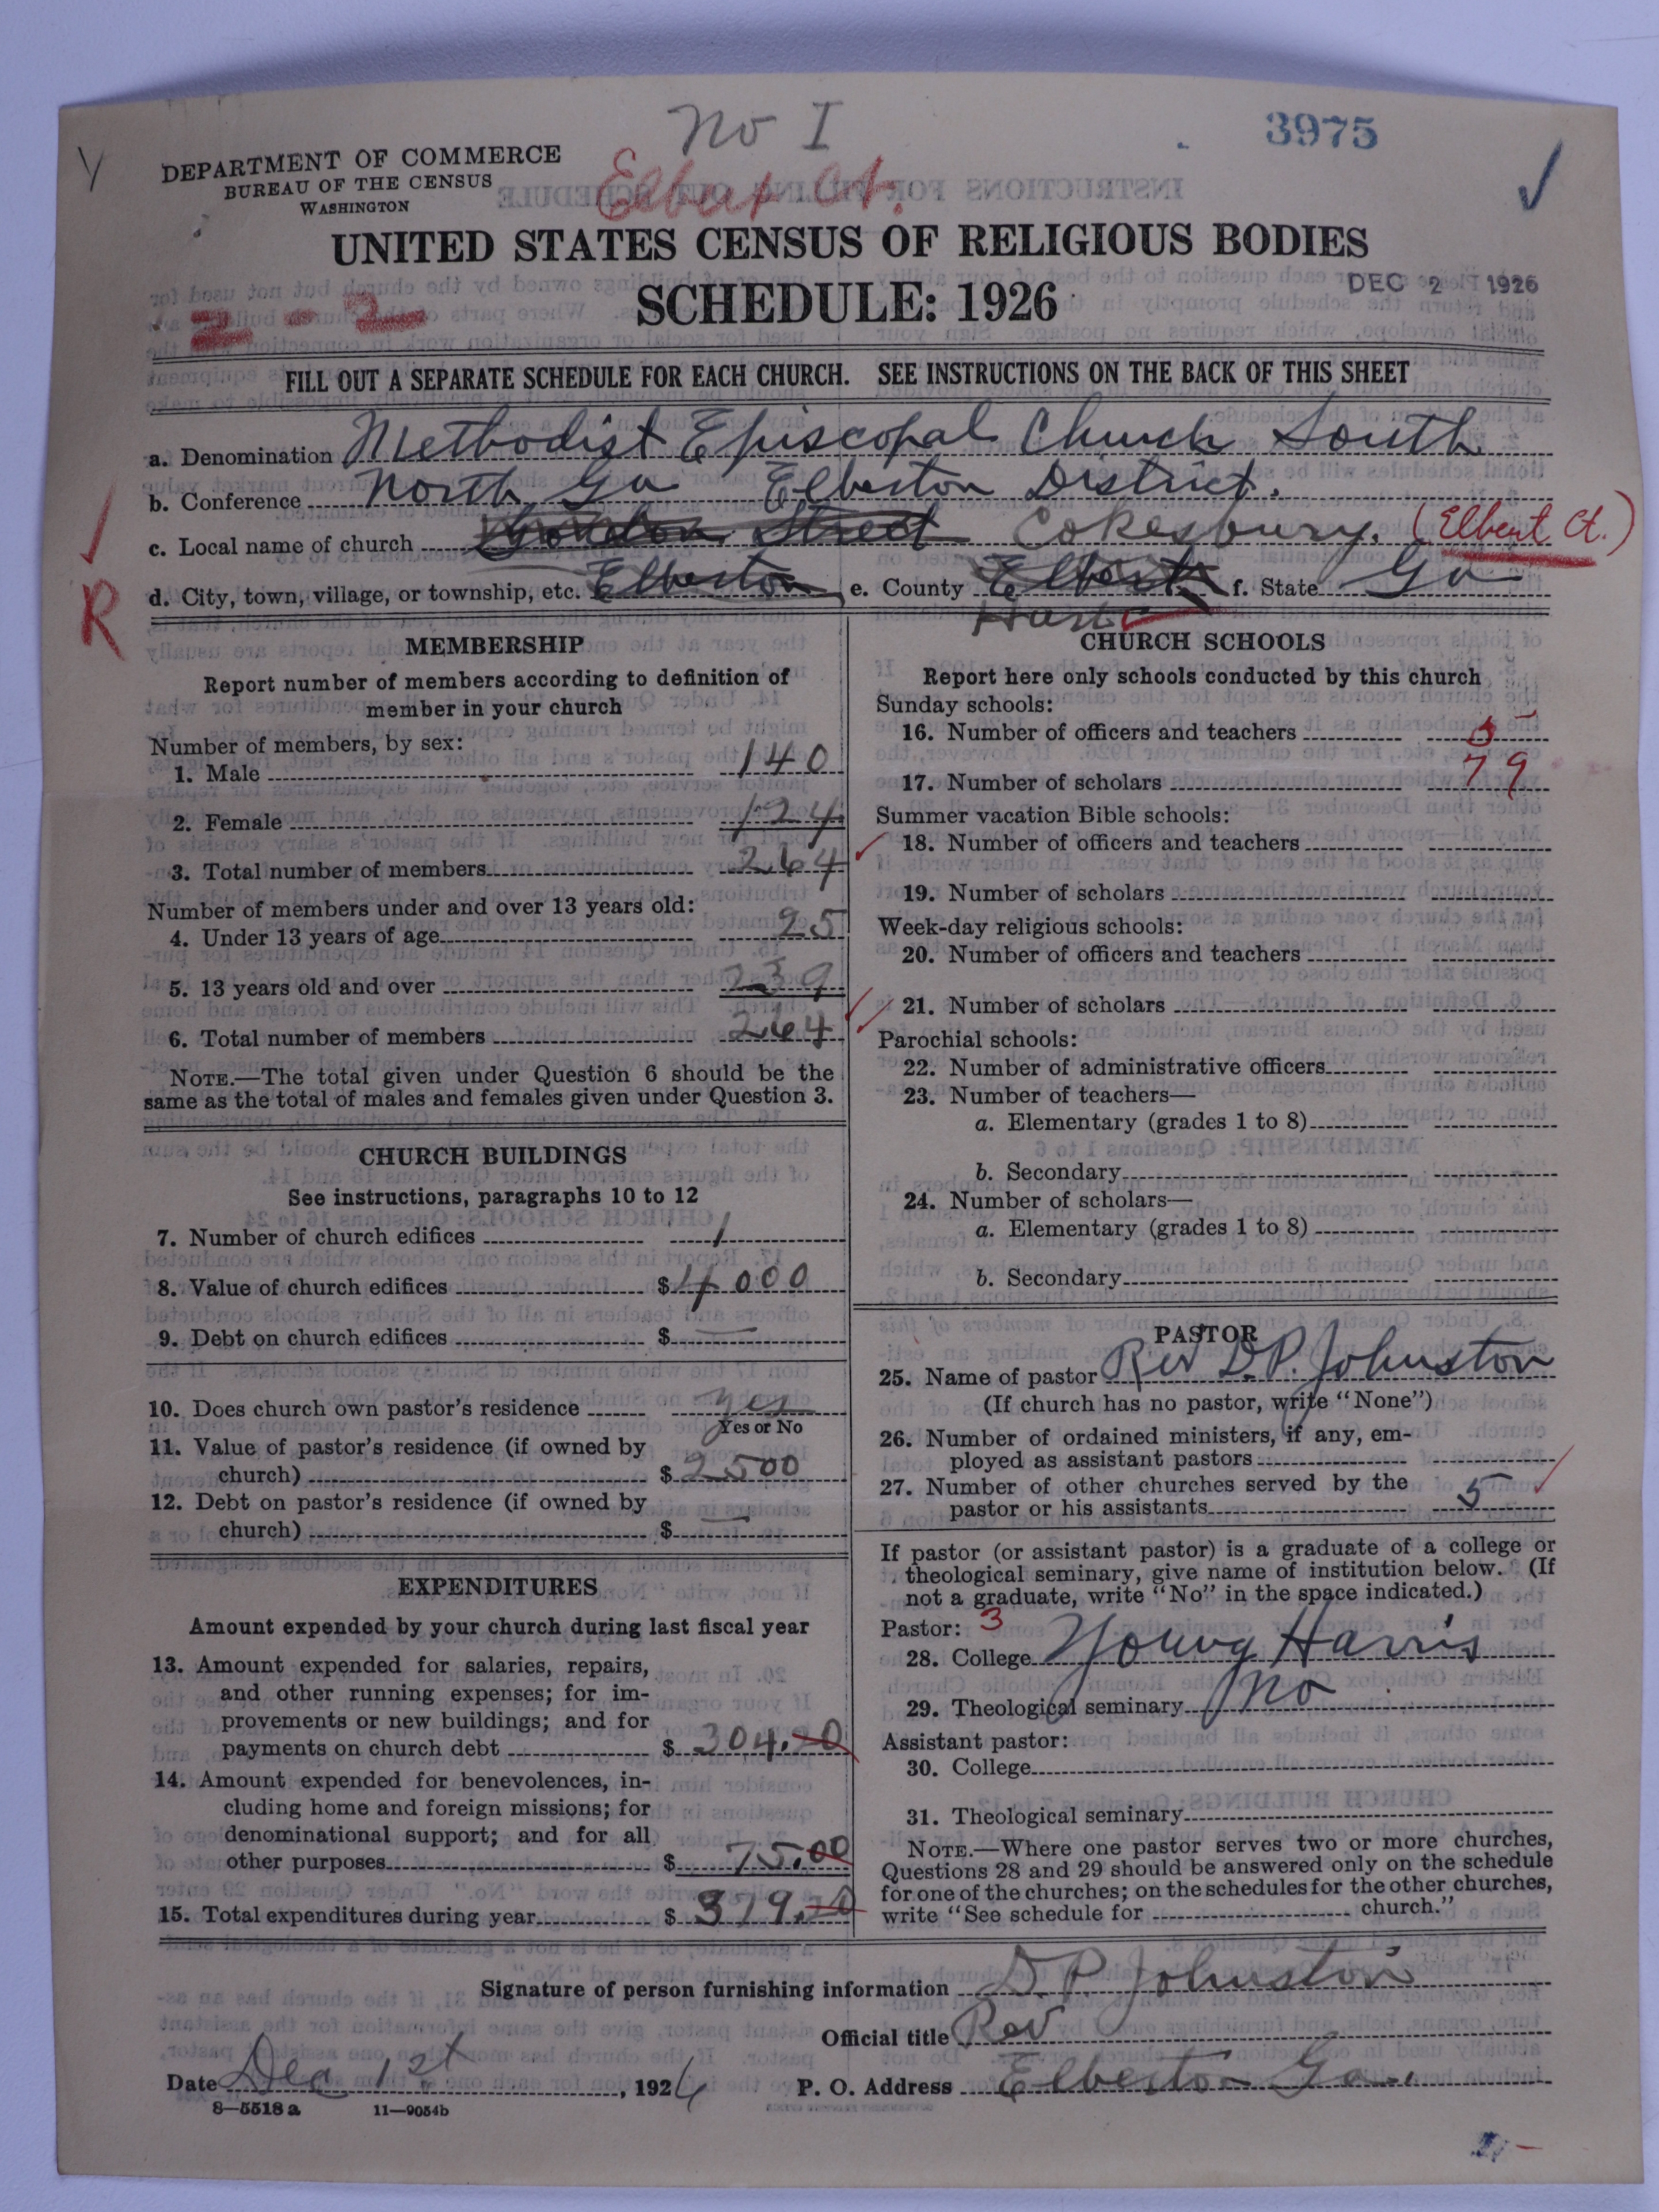 No I
3975
DEPARTMENT OF COMMERCE
BUREAU OF THE CENSUS
WASHINGTON
Elbert Ct.
UNITED STATES CENSUS OF RELIGIOUS BODIES
SCHEDULE: 1926
DEC 2 1926
2 - 2
FILL OUT A SEPARATE SCHEDULE FOR EACH CHURCH. SEE INSTRUCTIONS ON THE BACK OF THIS SHEET
a. Denomination Methodist Episcopal Church South
b. Conference North Ga Elberton District.
c. Local name of church Street Cokesbury. (Elbert Ct.)
d. City, town, village, or township, etc. Elberton e. County Elbert f. State Ga
Hart
R
MEMBERSHIP
Report number of members according to definition of
member in your church
Number of members, by sex:
1. Male 140
2. Female 124
3. Total number of members 264
Number of members under and over 13 years old:
4. Under 13 years of age 25
5. 13 years old and over 239
6. Total number of members 264
NOTE.—The total given under Question 6 should be the
same as the total of males and females given under Question 3.
CHURCH BUILDINGS
See instructions, paragraphs 10 to 12
7. Number of church edifices 1
8. Value of church edifices $ 4000
9. Debt on church edifices $ —
10. Does church own pastor's residence yes
Yes or No
11. Value of pastor's residence (if owned by
church) $ 2500
12. Debt on pastor's residence (if owned by
church) $ —
EXPENDITURES
Amount expended by your church during last fiscal year
13. Amount expended for salaries, repairs,
and other running expenses; for im-
provements or new buildings; and for
payments on church debt $ 304.
14. Amount expended for benevolences, in-
cluding home and foreign missions; for
denominational support; and for all
other purposes $ 75.00
15. Total expenditures during year $ 379.
CHURCH SCHOOLS
Report here only schools conducted by this church
Sunday schools:
16. Number of officers and teachers 5
17. Number of scholars 79
Summer vacation Bible schools:
18. Number of officers and teachers
19. Number of scholars
Week-day religious schools:
20. Number of officers and teachers
21. Number of scholars
Parochial schools:
22. Number of administrative officers
23. Number of teachers—
a. Elementary (grades 1 to 8)
b. Secondary
24. Number of scholars—
a. Elementary (grades 1 to 8)
b. Secondary
PASTOR
25. Name of pastor Rev D.P. Johnston
(If church has no pastor, write "None")
26. Number of ordained ministers, if any, em-
ployed as assistant pastors
27. Number of other churches served by the
pastor or his assistants 5
If pastor (or assistant pastor) is a graduate of a college or
theological seminary, give name of institution below. (If
not a graduate, write "No" in the space indicated.)
Pastor: 3
28. College Young Harris
29. Theological seminary No
Assistant pastor:
30. College
31. Theological seminary
NOTE.—Where one pastor serves two or more churches,
Questions 28 and 29 should be answered only on the schedule
for one of the churches; on the schedules for the other churches,
write "See schedule for church."
Signature of person furnishing information D.P. Johnston
Official title Rev
Date Dec 1st, 1926 P. O. Address Elberton Ga.
8—5518a 11—9054b